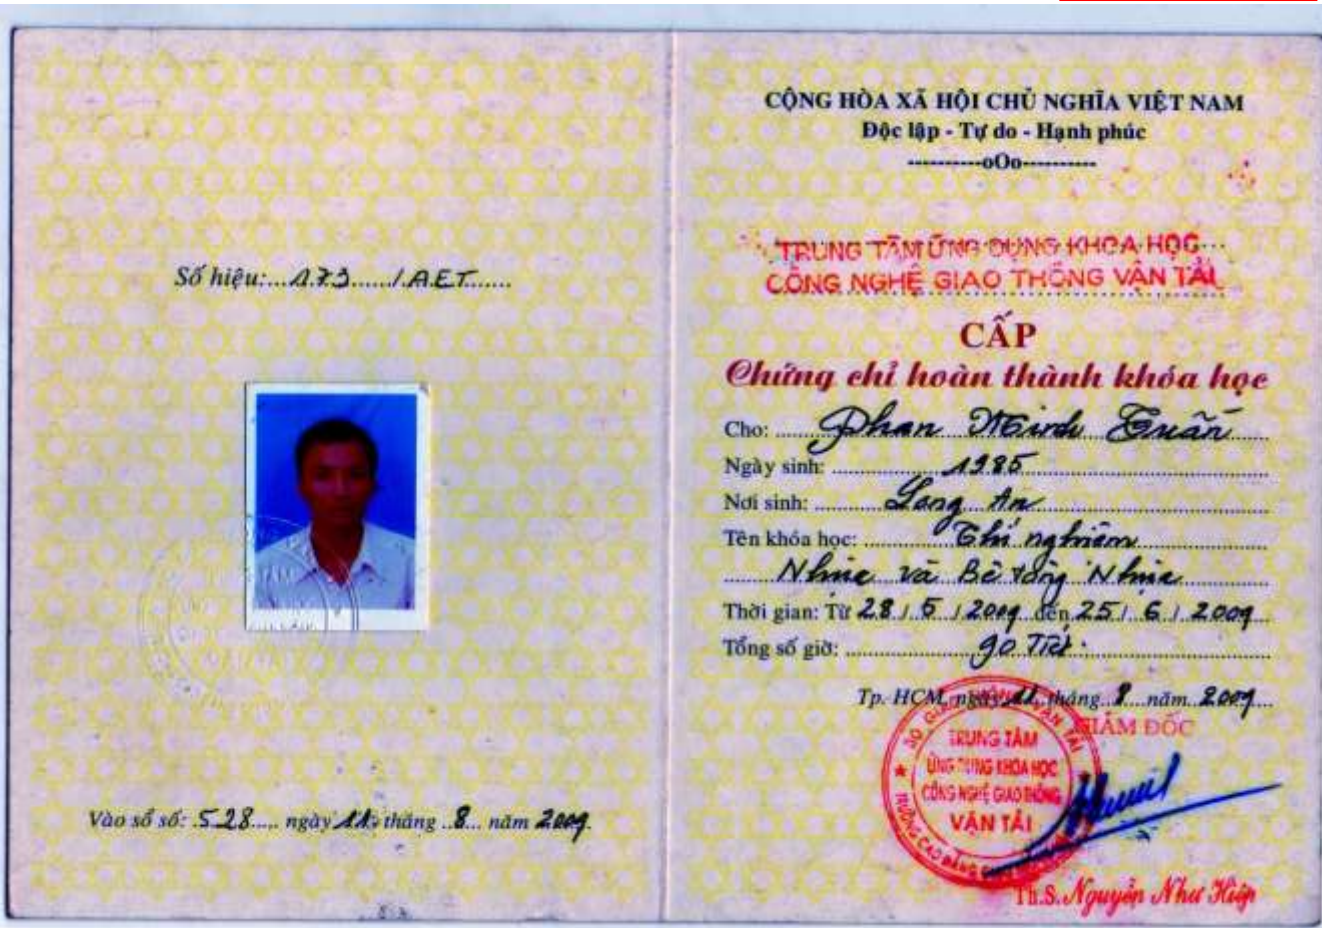 Số hiệu:...173....../AET.......
Vào sổ số: 528..... ngày 11 tháng ..8... năm 2009.
CỘNG HÒA XÃ HỘI CHỦ NGHĨA VIỆT NAM
Độc lập - Tự do - Hạnh phúc
----------oOo----------
TRUNG TÂM ỨNG DỤNG KHOA HỌC
CÔNG NGHỆ GIAO THÔNG VẬN TẢI
CẤP
Chứng chỉ hoàn thành khóa học
Cho: Phan Minh Tuấn
Ngày sinh: 1985
Nơi sinh: Long An
Tên khóa học: Thí nghiệm
Nhựa và Bê tông Nhựa
Thời gian: Từ 28 / 5 / 2009 đến 25 / 6 / 2009
Tổng số giờ: 90 Tiết.
Tp. HCM, ngày 11 tháng 8 năm 2009
GIÁM ĐỐC
SỞ GIAO THÔNG VẬN TẢI
TRUNG TÂM
ỨNG DỤNG KHOA HỌC
CÔNG NGHỆ GIAO THÔNG
VẬN TẢI
TRƯỜNG CAO ĐẲNG
Th.S. Nguyễn Như Hiệp